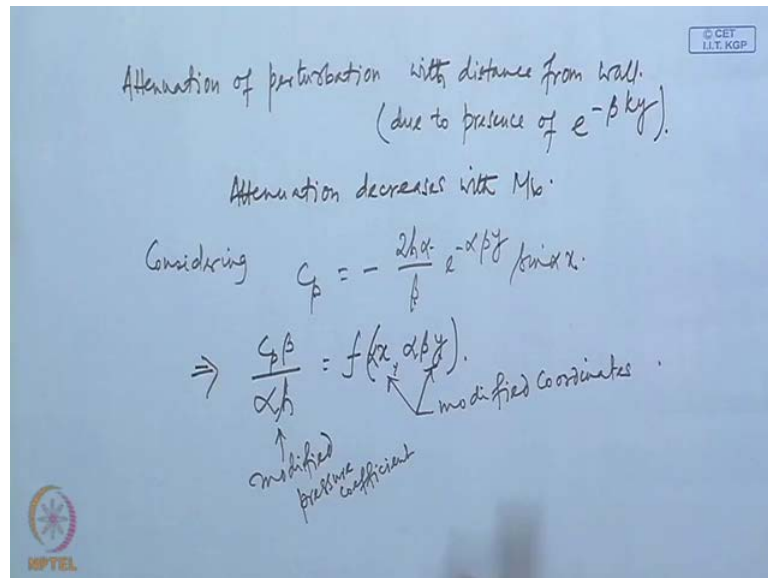 © CET
I.I.T. KGP
Attenuation of perturbation with distance from wall.
(due to presence of e^{-βky}).
Attenuation decreases with M∞.
Considering C_p = - 2hα/β e^{-αβy} sin αx.
⇒ C_pβ/αh = f(αx, αβy).
modified coordinates.
modified
pressure
coefficient
NPTEL